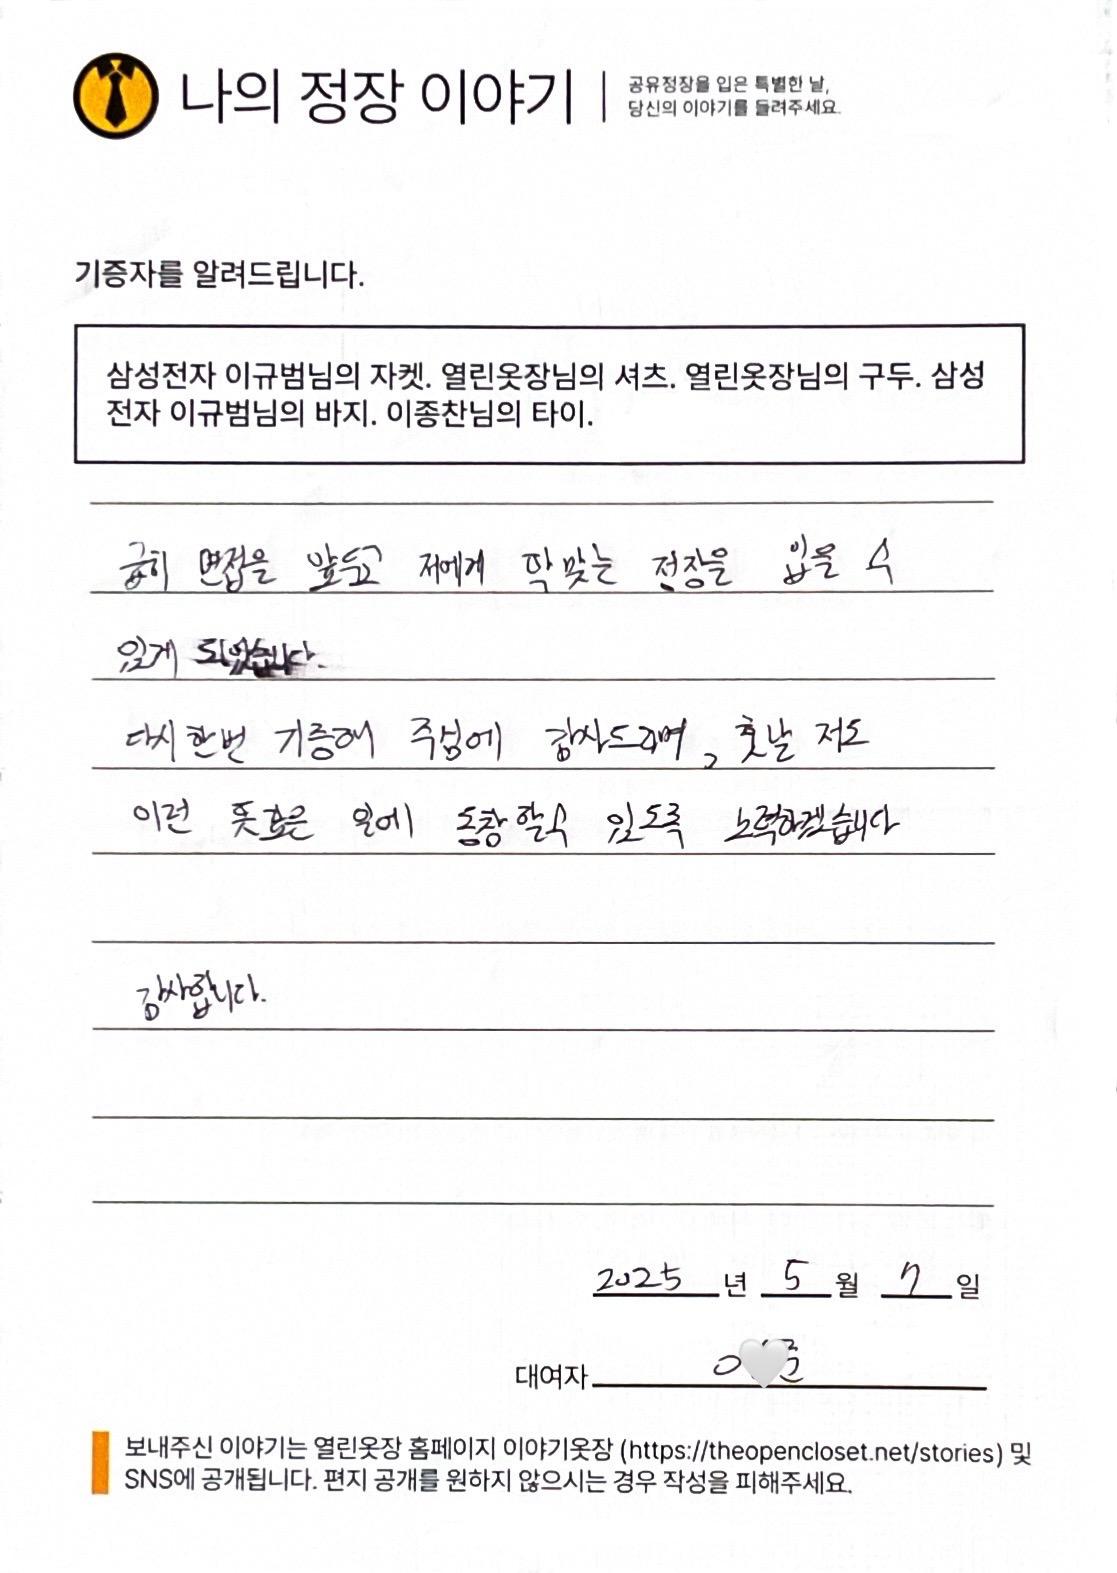 나의 정장 이야기
공유정장을 입은 특별한 날,
당신의 이야기를 들려주세요.
기증자를 알려드립니다.
삼성전자 이규범님의 자켓. 열린옷장님의 셔츠. 열린옷장님의 구두. 삼성
전자 이규범님의 바지. 이종찬님의 타이.
급히 면접을 앞두고 저에게 딱 맞는 정장을 입을 수
있게 되었습니다.
다시한번 기증해 주심에 감사드리며, 훗날 저도
이런 뜻 일에 동참할수 있도록 노력하겠습니다
감사합니다.
2025 년 5 월 7 일
대여자
보내주신 이야기는 열린옷장 홈페이지 이야기옷장 (https://theopencloset.net/stories) 및
SNS에 공개됩니다. 편지 공개를 원하지 않으시는 경우 작성을 피해주세요.